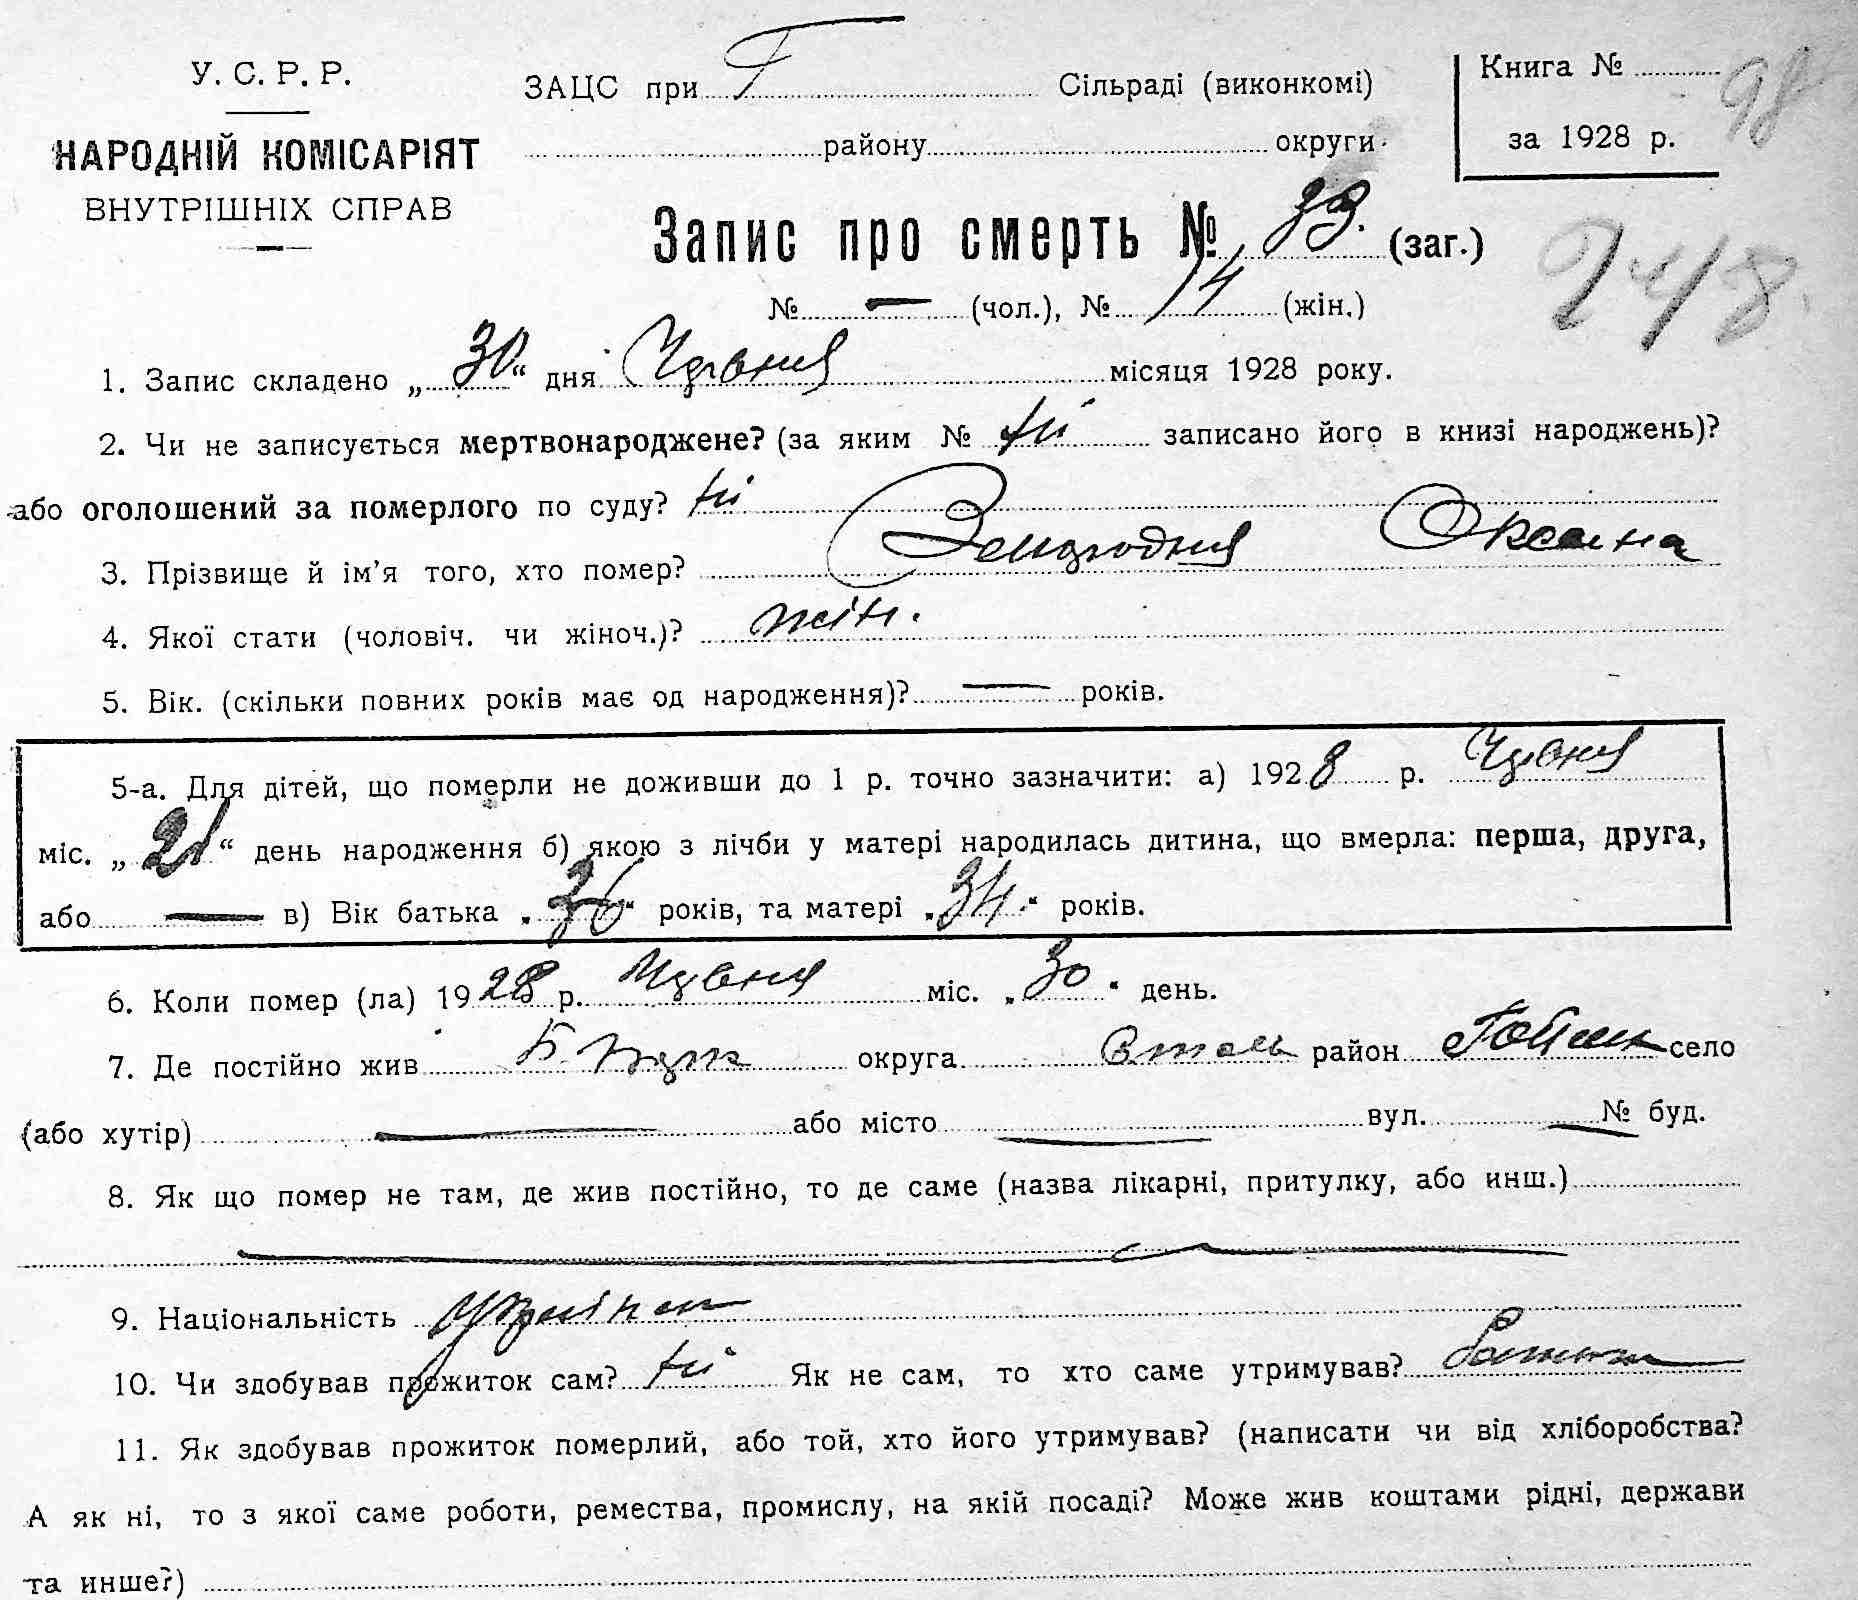 У. С. Р. Р.
НАРОДНІЙ КОМІСАРІЯТ
ВНУТРІШНІХ СПРАВ
ЗАЦС при Г Сільраді (виконкомі)
району округи
Книга №
за 1928 р.
98
Запис про смерть № 33. (заг.)
248.
№ — (чол.), № 14 (жін.)
1. Запис складено „30“ дня Червня місяця 1928 року.
2. Чи не записується мертвонароджене? (за яким № ні записано його в книзі народжень)?
або оголошений за померлого по суду? ні
3. Прізвище й ім’я того, хто помер? Оксана
4. Якої стати (чоловіч. чи жіноч.)? жін.
5. Вік. (скільки повних років має од народження)? — років.
5-а. Для дітей, що померли не доживши до 1 р. точно зазначити: а) 1928 р. Червня
міс. „21“ день народження б) якою з лічби у матері народилась дитина, що вмерла: перша, друга,
або — в) Вік батька „36“ років, та матері „34“ років.
6. Коли помер (ла) 1928 р. Червня міс. „30“ день.
7. Де постійно жив округа район село
(або хутір) — або місто — вул. — № буд.
8. Як що помер не там, де жив постійно, то де саме (назва лікарні, притулку, або инш.)
9. Національність україн
10. Чи здобував прожиток сам? ні Як не сам, то хто саме утримував? Батьки
11. Як здобував прожиток померлий, або той, хто його утримував? (написати чи від хліборобства?
А як ні, то з якої саме роботи, ремества, промислу, на якій посаді? Може жив коштами рідні, держави
та инше?)